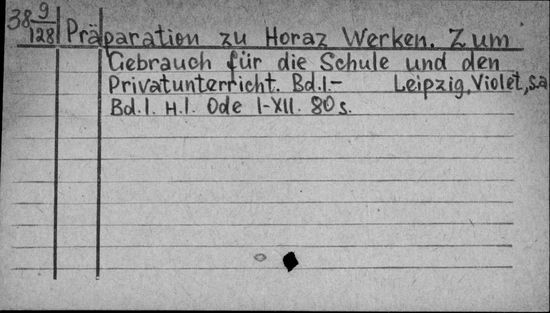 38 9/128 Präparation zu Horaz Werken. Zum
Gebrauch für die Schule und den
Privatunterricht. Bd.1.- Leipzig, Violet, s.a
Bd.1. H.1. Ode I-XII. 80 s.